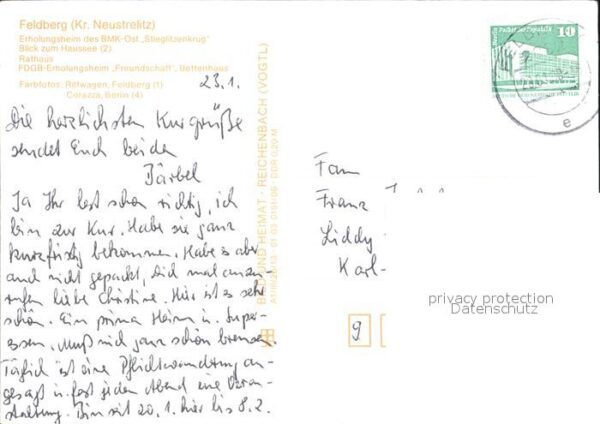 Feldberg (Kr. Neustrelitz)
Erholungsheim des BMK-Ost „Stieglitzenkrug"
Blick zum Haussee (2)
Rathaus
FDGB-Erholungsheim „Freundschaft", Bettenhaus
Farbfotos: Rittwagen, Feldberg (1)
Corazza, Berlin (4)
23.1.
Die herzlichsten Kurgrüße
sendet Euch beiden
Bärbel
Ja Ihr lest schon richtig, ich
bin zur Kur. Habe sie ganz
kurzfristig bekommen. Habe es aber
auch nicht gepackt, Dich mal anzu-
rufen liebe Christine. Hier ist es sehr
schön. Ein prima Heim u. Super-
essen. Muß mich ganz schön bremsen.
Täglich ist eine Pflichtwanderung an-
gesagt u. fast jeden Abend eine Veran-
staltung. Bin seit 20.1. hier bis 8.2.
BILD UND HEIMAT REICHENBACH (VOGTL)
01 03 0151/06 DDR 0,20 M
10
Fam
Franz
Liddy
Karl-
9
e
privacy protection
Datenschutz